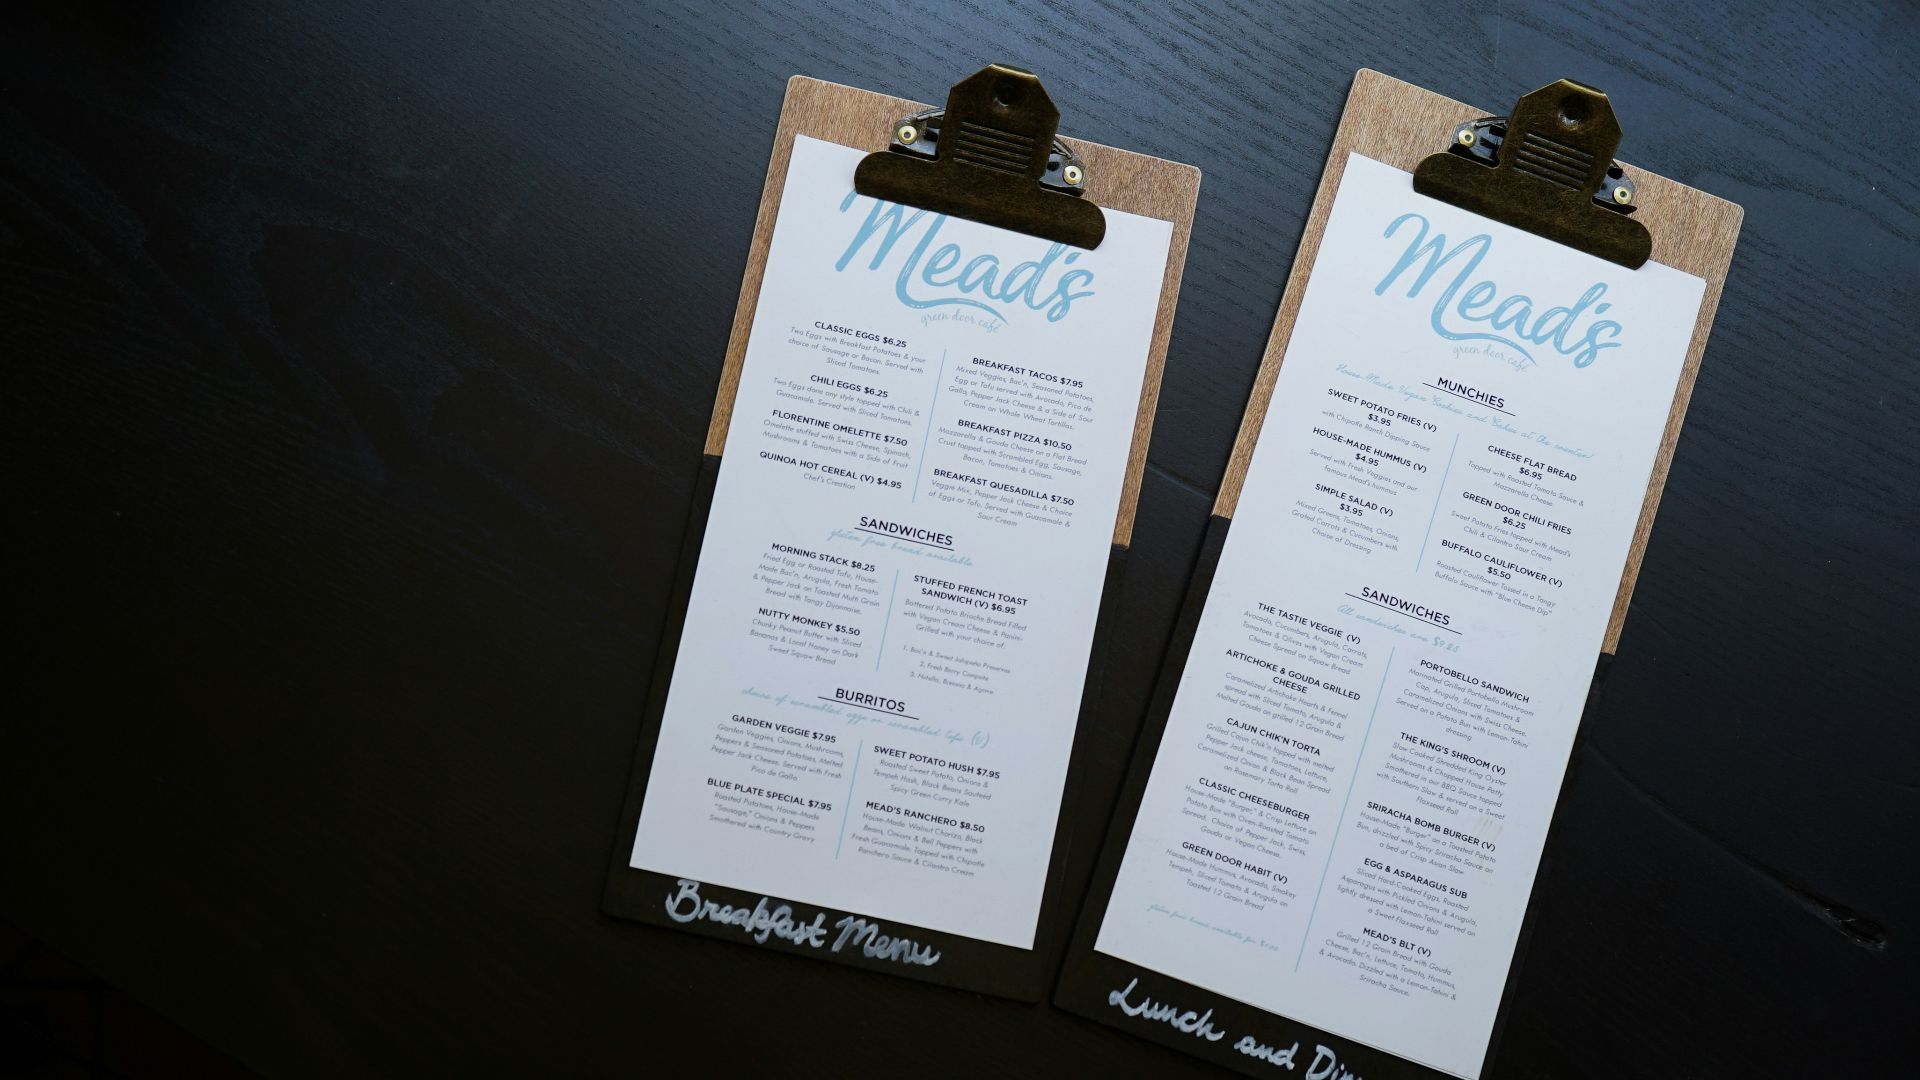 Mead's
green door café
CLASSIC EGGS $6.25
Two Eggs with Breakfast Potatoes & your
choice of Sausage or Bacon. Served with
Sliced Tomatoes.
CHILI EGGS $6.25
Two Eggs done any style topped with Chili &
Guacamole. Served with Sliced Tomatoes.
FLORENTINE OMELETTE $7.50
Omelette stuffed with Swiss Cheese, Spinach,
Mushrooms & Tomatoes with a Side of Fruit
QUINOA HOT CEREAL (V) $4.95
Chef's Creation
BREAKFAST TACOS $7.95
Mixed Veggies, Bac'n, Seasoned Potatoes,
Egg or Tofu served with Avocado, Pico de
Gallo, Pepper Jack Cheese & a Side of Sour
Cream on Whole Wheat Tortillas.
BREAKFAST PIZZA $10.50
Mozzarella & Gouda Cheese on a Flat Bread
Crust topped with Scrambled Egg, Sausage,
Bacon, Tomatoes & Onions.
BREAKFAST QUESADILLA $7.50
Veggie Mix, Pepper Jack Cheese & Choice
of Eggs or Tofu. Served with Guacamole &
Sour Cream
SANDWICHES
gluten free bread available
MORNING STACK $8.25
Fried Egg or Roasted Tofu, House-
Made Bac'n, Arugula, Fresh Tomato
& Pepper Jack on Toasted Multi Grain
Bread with Tangy Dijonnaise.
NUTTY MONKEY $5.50
Chunky Peanut Butter with Sliced
Bananas & Local Honey on Dark
Sweet Squaw Bread
STUFFED FRENCH TOAST
SANDWICH (V) $6.95
Battered Potato Brioche Bread Filled
with Vegan Cream Cheese & Panini-
Grilled with your choice of:
1. Bac'n & Sweet Jalapeño Preserves
2. Fresh Berry Compote
3. Nutella, Banana & Agave
BURRITOS
choice of scrambled eggs or scrambled tofu (V)
GARDEN VEGGIE $7.95
Garden Veggies, Onions, Mushrooms,
Peppers & Seasoned Potatoes, Melted
Pepper Jack Cheese. Served with Fresh
Pico de Gallo
BLUE PLATE SPECIAL $7.95
Roasted Potatoes, House-Made
"Sausage," Onions & Peppers
Smothered with Country Gravy
SWEET POTATO HUSH $7.95
Roasted Sweet Potato, Onions &
Tempeh Hash, Black Beans Sautéed
Spicy Green Curry Kale
MEAD'S RANCHERO $8.50
House-Made Walnut Chorizo, Black
Beans, Onions & Bell Peppers with
Fresh Guacamole. Topped with Chipotle
Ranchero Sauce & Cilantro Cream
Breakfast Menu
Mead's
green door café
MUNCHIES
House-Made Vegan Cookies and Cakes at the counter!
SWEET POTATO FRIES (V)
$3.95
with Chipotle Ranch Dipping Sauce
HOUSE-MADE HUMMUS (V)
$4.95
Served with Fresh Veggies and our
famous Mead's hummus
SIMPLE SALAD (V)
$3.95
Mixed Greens, Tomatoes, Onions,
Grated Carrots & Cucumbers with
Choice of Dressing
CHEESE FLAT BREAD
$6.95
Topped with Roasted Tomato Sauce &
Mozzarella Cheese
GREEN DOOR CHILI FRIES
$6.25
Sweet Potato Fries topped with Mead's
Chili & Cilantro Sour Cream
BUFFALO CAULIFLOWER (V)
$5.50
Roasted Cauliflower Tossed in a Tangy
Buffalo Sauce with "Blue Cheese Dip"
SANDWICHES
All sandwiches are $9.25
THE TASTIE VEGGIE (V)
Avocado, Cucumbers, Arugula, Carrots,
Tomatoes & Olives with Vegan Cream
Cheese Spread on Squaw Bread
ARTICHOKE & GOUDA GRILLED
CHEESE
Caramelized Artichoke Hearts & Fennel
spread with Sliced Tomato, Arugula &
Melted Gouda on grilled 12 Grain Bread
CAJUN CHIK'N TORTA
Grilled Cajun Chik'n topped with melted
Pepper Jack cheese, Tomatoes, Lettuce,
Caramelized Onion & Black Bean Spread
on Rosemary Torta Roll
CLASSIC CHEESEBURGER
House-Made "Burger," & Crisp Lettuce on
Potato Bun with Oven-Roasted Tomato
Spread. Choice of Pepper Jack, Swiss,
Gouda or Vegan Cheese.
GREEN DOOR HABIT (V)
House-Made Hummus, Avocado, Smokey
Tempeh, Sliced Tomato & Arugula on
Toasted 12 Grain Bread
gluten free bread available for $1.00
PORTOBELLO SANDWICH
Marinated Grilled Portobello Mushroom
Cap, Arugula, Sliced Tomatoes &
Caramelized Onions with Swiss Cheese,
Served on a Potato Bun with Lemon-Tahini
dressing
THE KING'S SHROOM (V)
Slow Cooked Shredded King Oyster
Mushrooms & Chopped House Patty
Smothered in our BBQ Sauce topped
with Southern Slaw & served on a Sweet
Flaxseed Roll
SRIRACHA BOMB BURGER (V)
House-Made "Burger" on a Toasted Potato
Bun, drizzled with Spicy Sriracha Sauce on
a bed of Crisp Asian Slaw
EGG & ASPARAGUS SUB
Sliced Hard-Cooked Eggs, Roasted
Asparagus with Pickled Onions & Arugula,
lightly dressed with Lemon-Tahini served on
a Sweet Flaxseed Roll
MEAD'S BLT (V)
Grilled 12 Grain Bread with Gouda
Cheese, Bac'n, Lettuce, Tomato, Hummus,
& Avocado. Dizzled with a Lemon-Tahini &
Sriracha Sauce.
Lunch and Din